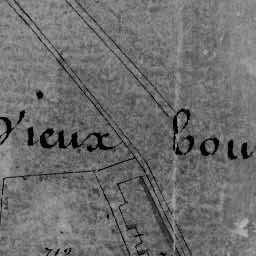 Vieux bou
712